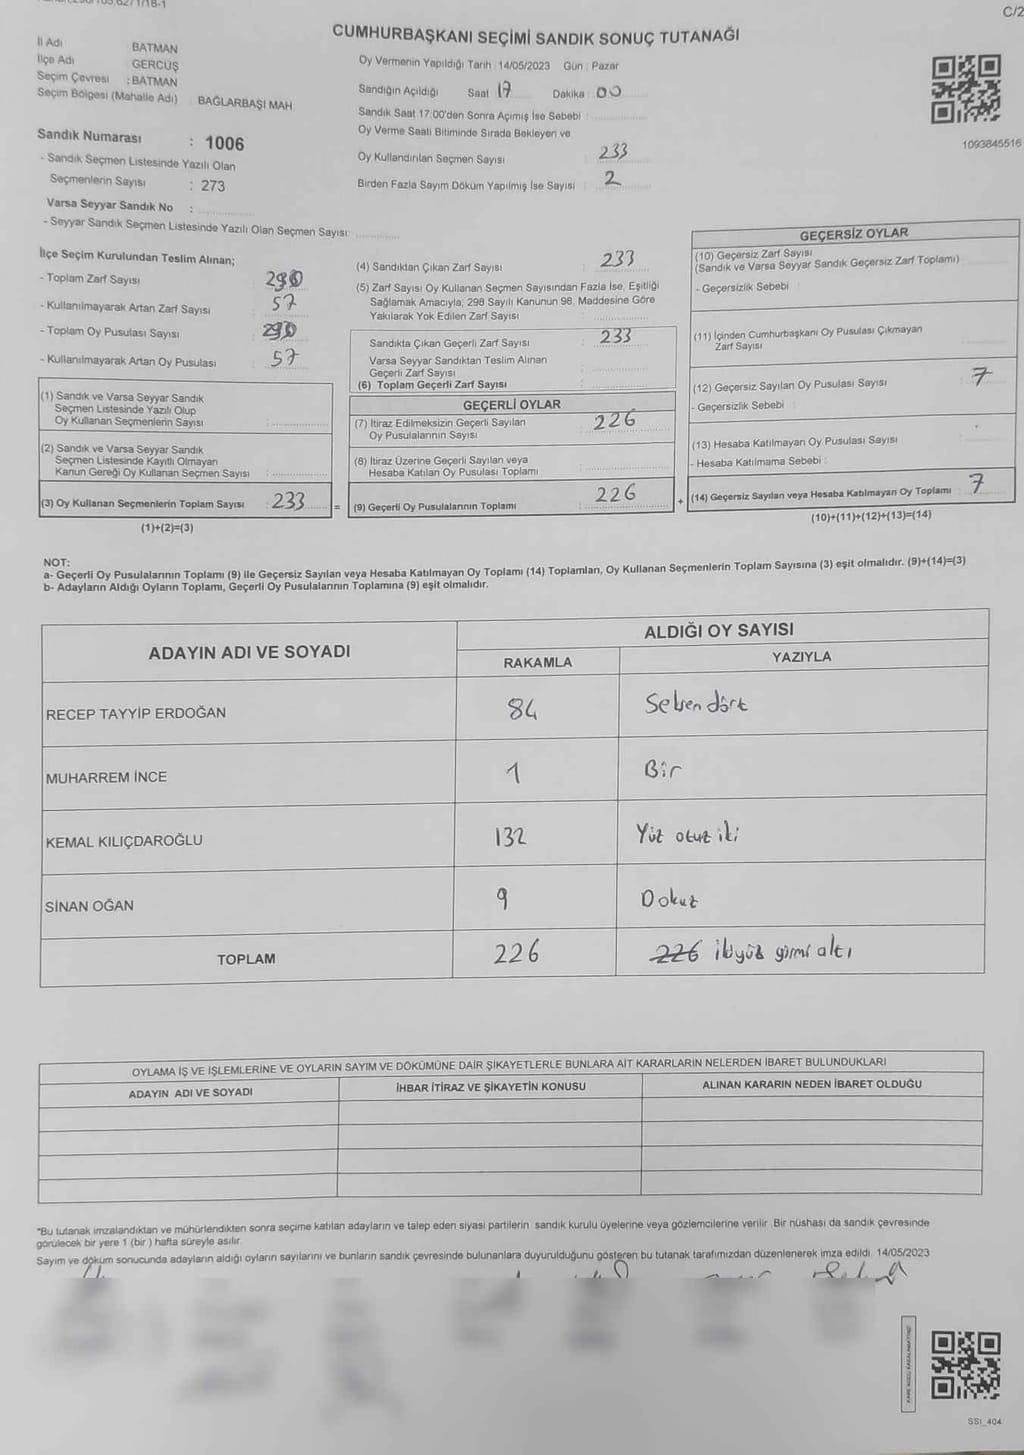 C/2
CUMHURBAŞKANI SEÇİMİ SANDIK SONUÇ TUTANAĞI
İl Adı BATMAN
İlçe Adı GERCÜŞ
Seçim Çevresi : BATMAN
Seçim Bölgesi (Mahalle Adı) BAĞLARBAŞI MAH.
Sandık Numarası : 1006
- Sandık Seçmen Listesinde Yazılı Olan
Seçmenlerin Sayısı : 273
Varsa Seyyar Sandık No :
- Seyyar Sandık Seçmen Listesinde Yazılı Olan Seçmen Sayısı:
Oy Vermenin Yapıldığı Tarih 14/05/2023 Gün : Pazar
Sandığın Açıldığı Saat 17 Dakika 00
Sandık Saat 17:00'den Sonra Açımış İse Sebebi :
Oy Verme Saati Bitiminde Sırada Bekleyen ve
Oy Kullandırılan Seçmen Sayısı : 233
Birden Fazla Sayım Döküm Yapılmış İse Sayısı : 2
1093845516
İlçe Seçim Kurulundan Teslim Alınan;
- Toplam Zarf Sayısı 290
- Kullanılmayarak Artan Zarf Sayısı 57
- Toplam Oy Pusulası Sayısı 290
- Kullanılmayarak Artan Oy Pusulası 57
(1) Sandık ve Varsa Seyyar Sandık
Seçmen Listesinde Yazılı Olup
Oy Kullanan Seçmenlerin Sayısı :
(2) Sandık ve Varsa Seyyar Sandık
Seçmen Listesinde Kayıtlı Olmayan
Kanun Gereği Oy Kullanan Seçmen Sayısı :
(3) Oy Kullanan Seçmenlerin Toplam Sayısı : 233 =
(1)+(2)=(3)
(4) Sandıktan Çıkan Zarf Sayısı : 233
(5) Zarf Sayısı Oy Kullanan Seçmen Sayısından Fazla İse, Eşitliği
Sağlamak Amacıyla; 298 Sayılı Kanunun 98. Maddesine Göre
Yakılarak Yok Edilen Zarf Sayısı :
Sandıkta Çıkan Geçerli Zarf Sayısı : 233
Varsa Seyyar Sandıktan Teslim Alınan
Geçerli Zarf Sayısı :
(6) Toplam Geçerli Zarf Sayısı :
GEÇERLİ OYLAR
(7) İtiraz Edilmeksizin Geçerli Sayılan
Oy Pusulalarının Sayısı : 226
(8) İtiraz Üzerine Geçerli Sayılan veya
Hesaba Katılan Oy Pusulası Toplamı :
(9) Geçerli Oy Pusulalarının Toplamı : 226 +
GEÇERSİZ OYLAR
(10) Geçersiz Zarf Sayısı
(Sandık ve Varsa Seyyar Sandık Geçersiz Zarf Toplamı)
- Geçersizlik Sebebi :
(11) İçinden Cumhurbaşkanı Oy Pusulası Çıkmayan
Zarf Sayısı
(12) Geçersiz Sayılan Oy Pusulası Sayısı : 7
- Geçersizlik Sebebi :
(13) Hesaba Katılmayan Oy Pusulası Sayısı :
- Hesaba Katılmama Sebebi :
(14) Geçersiz Sayılan veya Hesaba Katılmayan Oy Toplamı : 7
(10)+(11)+(12)+(13)=(14)
NOT:
a- Geçerli Oy Pusulalarının Toplamı (9) ile Geçersiz Sayılan veya Hesaba Katılmayan Oy Toplamı (14) Toplamları, Oy Kullanan Seçmenlerin Toplam Sayısına (3) eşit olmalıdır. (9)+(14)=(3)
b- Adayların Aldığı Oyların Toplamı, Geçerli Oy Pusulalarının Toplamına (9) eşit olmalıdır.
ADAYIN ADI VE SOYADI ALDIĞI OY SAYISI
RAKAMLA YAZIYLA
RECEP TAYYİP ERDOĞAN 84 Seksen dört
MUHARREM İNCE 1 Bir
KEMAL KILIÇDAROĞLU 132 Yüz otuz iki
SİNAN OĞAN 9 Dokuz
TOPLAM 226 226 ikiyüz yirmi altı
OYLAMA İŞ VE İŞLEMLERİNE VE OYLARIN SAYIM VE DÖKÜMÜNE DAİR ŞİKAYETLERLE BUNLARA AİT KARARLARIN NELERDEN İBARET BULUNDUKLARI
ADAYIN ADI VE SOYADI İHBAR İTİRAZ VE ŞİKAYETİN KONUSU ALINAN KARARIN NEDEN İBARET OLDUĞU
*Bu tutanak imzalandıktan ve mühürlendikten sonra seçime katılan adayların ve talep eden siyasi partilerin sandık kurulu üyelerine veya gözlemcilerine verilir. Bir nüshası da sandık çevresinde
görülecek bir yere 1 (bir ) hafta süreyle asılır.
Sayım ve döküm sonucunda adayların aldığı oyların sayılarını ve bunların sandık çevresinde bulunanlara duyurulduğunu gösteren bu tutanak tarafımızdan düzenlenerek imza edildi. 14/05/2023
SSI_404